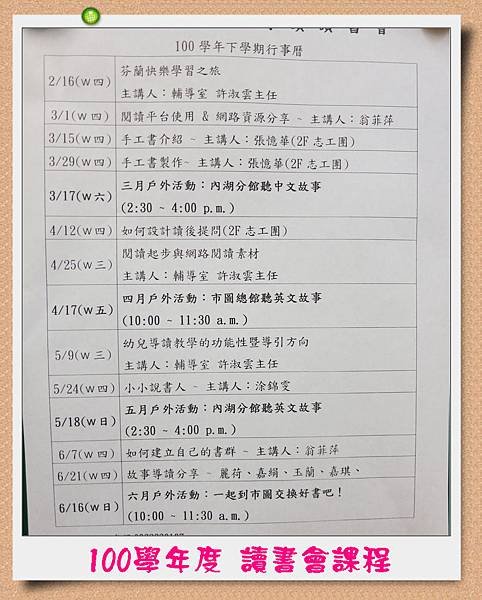 讀書會
100 學年下學期行事曆
2/16(w四)
芬蘭快樂學習之旅
主講人：輔導室 許淑雲主任
3/1(w四) 閱讀平台使用 & 網路資源分享 ~ 主講人：翁菲萍
3/15(w四) 手工書介紹 ~ 主講人：張憶華(2F志工團)
3/29(w四) 手工書製作~ 主講人：張憶華(2F志工團)
3/17(w六)
三月戶外活動：內湖分館聽中文故事
(2:30 ~ 4:00 p.m.)
4/12(w四) 如何設計讀後提問(2F志工團)
4/25(w三)
閱讀起步與網路閱讀素材
主講人：輔導室 許淑雲主任
4/17(w五)
四月戶外活動：市圖總館聽英文故事
(10:00 ~ 11:30 a.m.)
5/9(w三)
幼兒導讀教學的功能性暨導引方向
主講人：輔導室 許淑雲主任
5/24(w四) 小小說書人 ~ 主講人：涂錦雯
5/18(w日)
五月戶外活動：內湖分館聽英文故事
(2:30 ~ 4:00 p.m.)
6/7(w四) 如何建立自己的書群 ~ 主講人：翁菲萍
6/21(w四) 故事導讀分享 ~ 麗荷、嘉絹、玉蘭、嘉琪、
6/16(w日)
六月戶外活動：一起到市圖交換好書吧！
(10:00 ~ 11:30 a.m.)
100學年度 讀書會課程